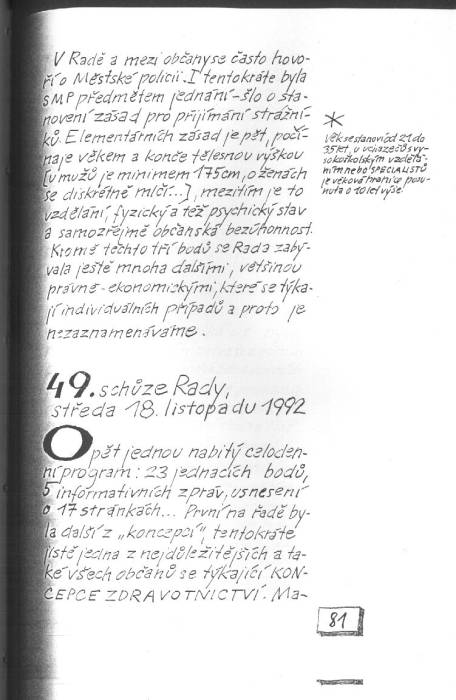 V Radě a mezi občany se často hovo-
ří o Městské policii. I tentokráte byla
SMP předmětem jednání - šlo o sta-
novení zásad pro přijímání strážní-
ků. Elementárních zásad je pět, počí-
naje věkem a konče tělesnou výškou
[u mužů je minimem 175cm, o ženách
se diskrétně mlčí...], mezitím je to
vzdělání, fyzický a též psychický stav
a samozřejmě občanská bezúhonnost.
Kromě těchto tří bodů se Rada zabý-
vala ještě mnoha dalšími, většinou
právně-ekonomickými, které se týka-
jí individuálních případů a proto je
nezaznamenáváme.
*
Věk se stanoví od 21 do
35 let, u uchazečů s vy-
sokoškolským vzdělá-
ním nebo SPECIALISTŮ
je věková hranice posu-
nuta o 10 let výše.
49. schůze Rady,
středa 18. listopadu 1992
Opět jednou nabitý celoden-
ní program: 23 jednacích bodů,
5 informativních zpráv, usnesení
o 17 stránkách... První na řadě by-
la další z „koncepcí", tentokráte
jistě jedna z nejdůležitějších a ta-
ké všech občanů se týkající KON-
CEPCE ZDRAVOTNICTVÍ. Ma-
81